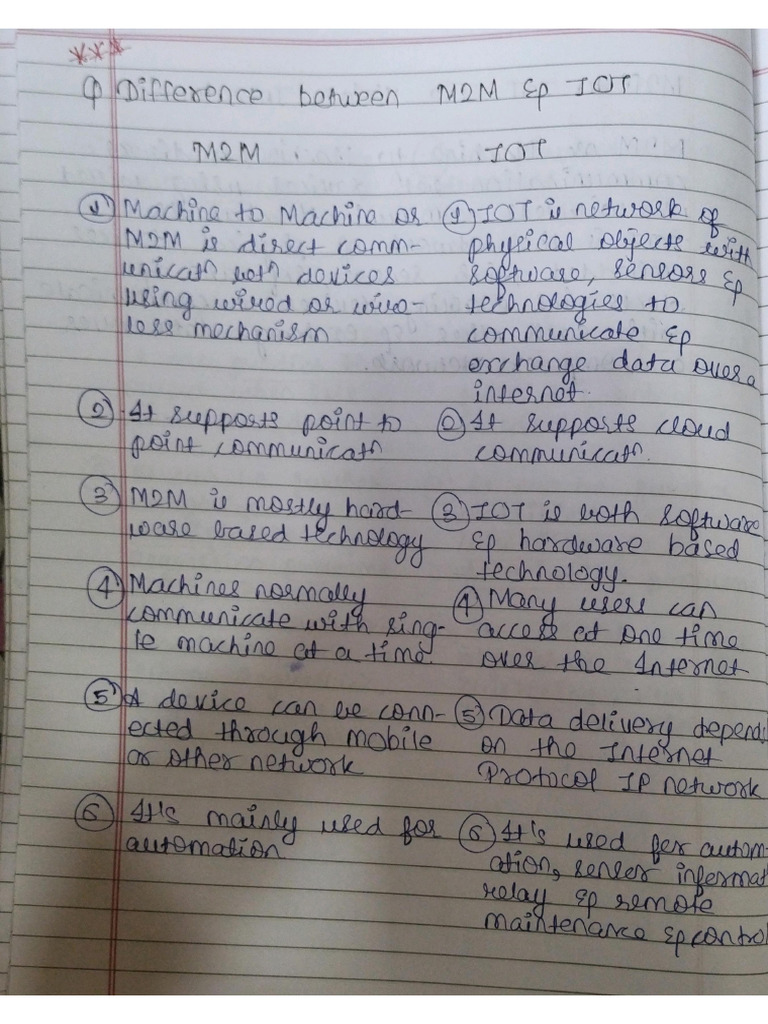 ***
Q Difference between M2M & IOT
M2M IOT
① Machine to Machine or
M2M is direct comm-
unicatn both devices
using wired or wire-
less mechanism
① IOT is network of
physical objects with
software, sensors &
technologies to
communicate &
exchange data over a
internet.
② It supports point to
point communicatn
② It supports cloud
communicatn.
③ M2M is mostly hard-
ware based technology
③ IOT is both software
& hardware based
technology.
④ Machines normally
communicate with sing-
le machine at a time.
④ Many users can
access at one time
over the Internet
⑤ A device can be conn-
ected through mobile
or other network
⑤ Data delivery dependi
on the Internet
Protocol IP network
⑥ It's mainly used for
automation
⑥ It's used for autom-
ation, senser informat
relay & remote
maintenance & control